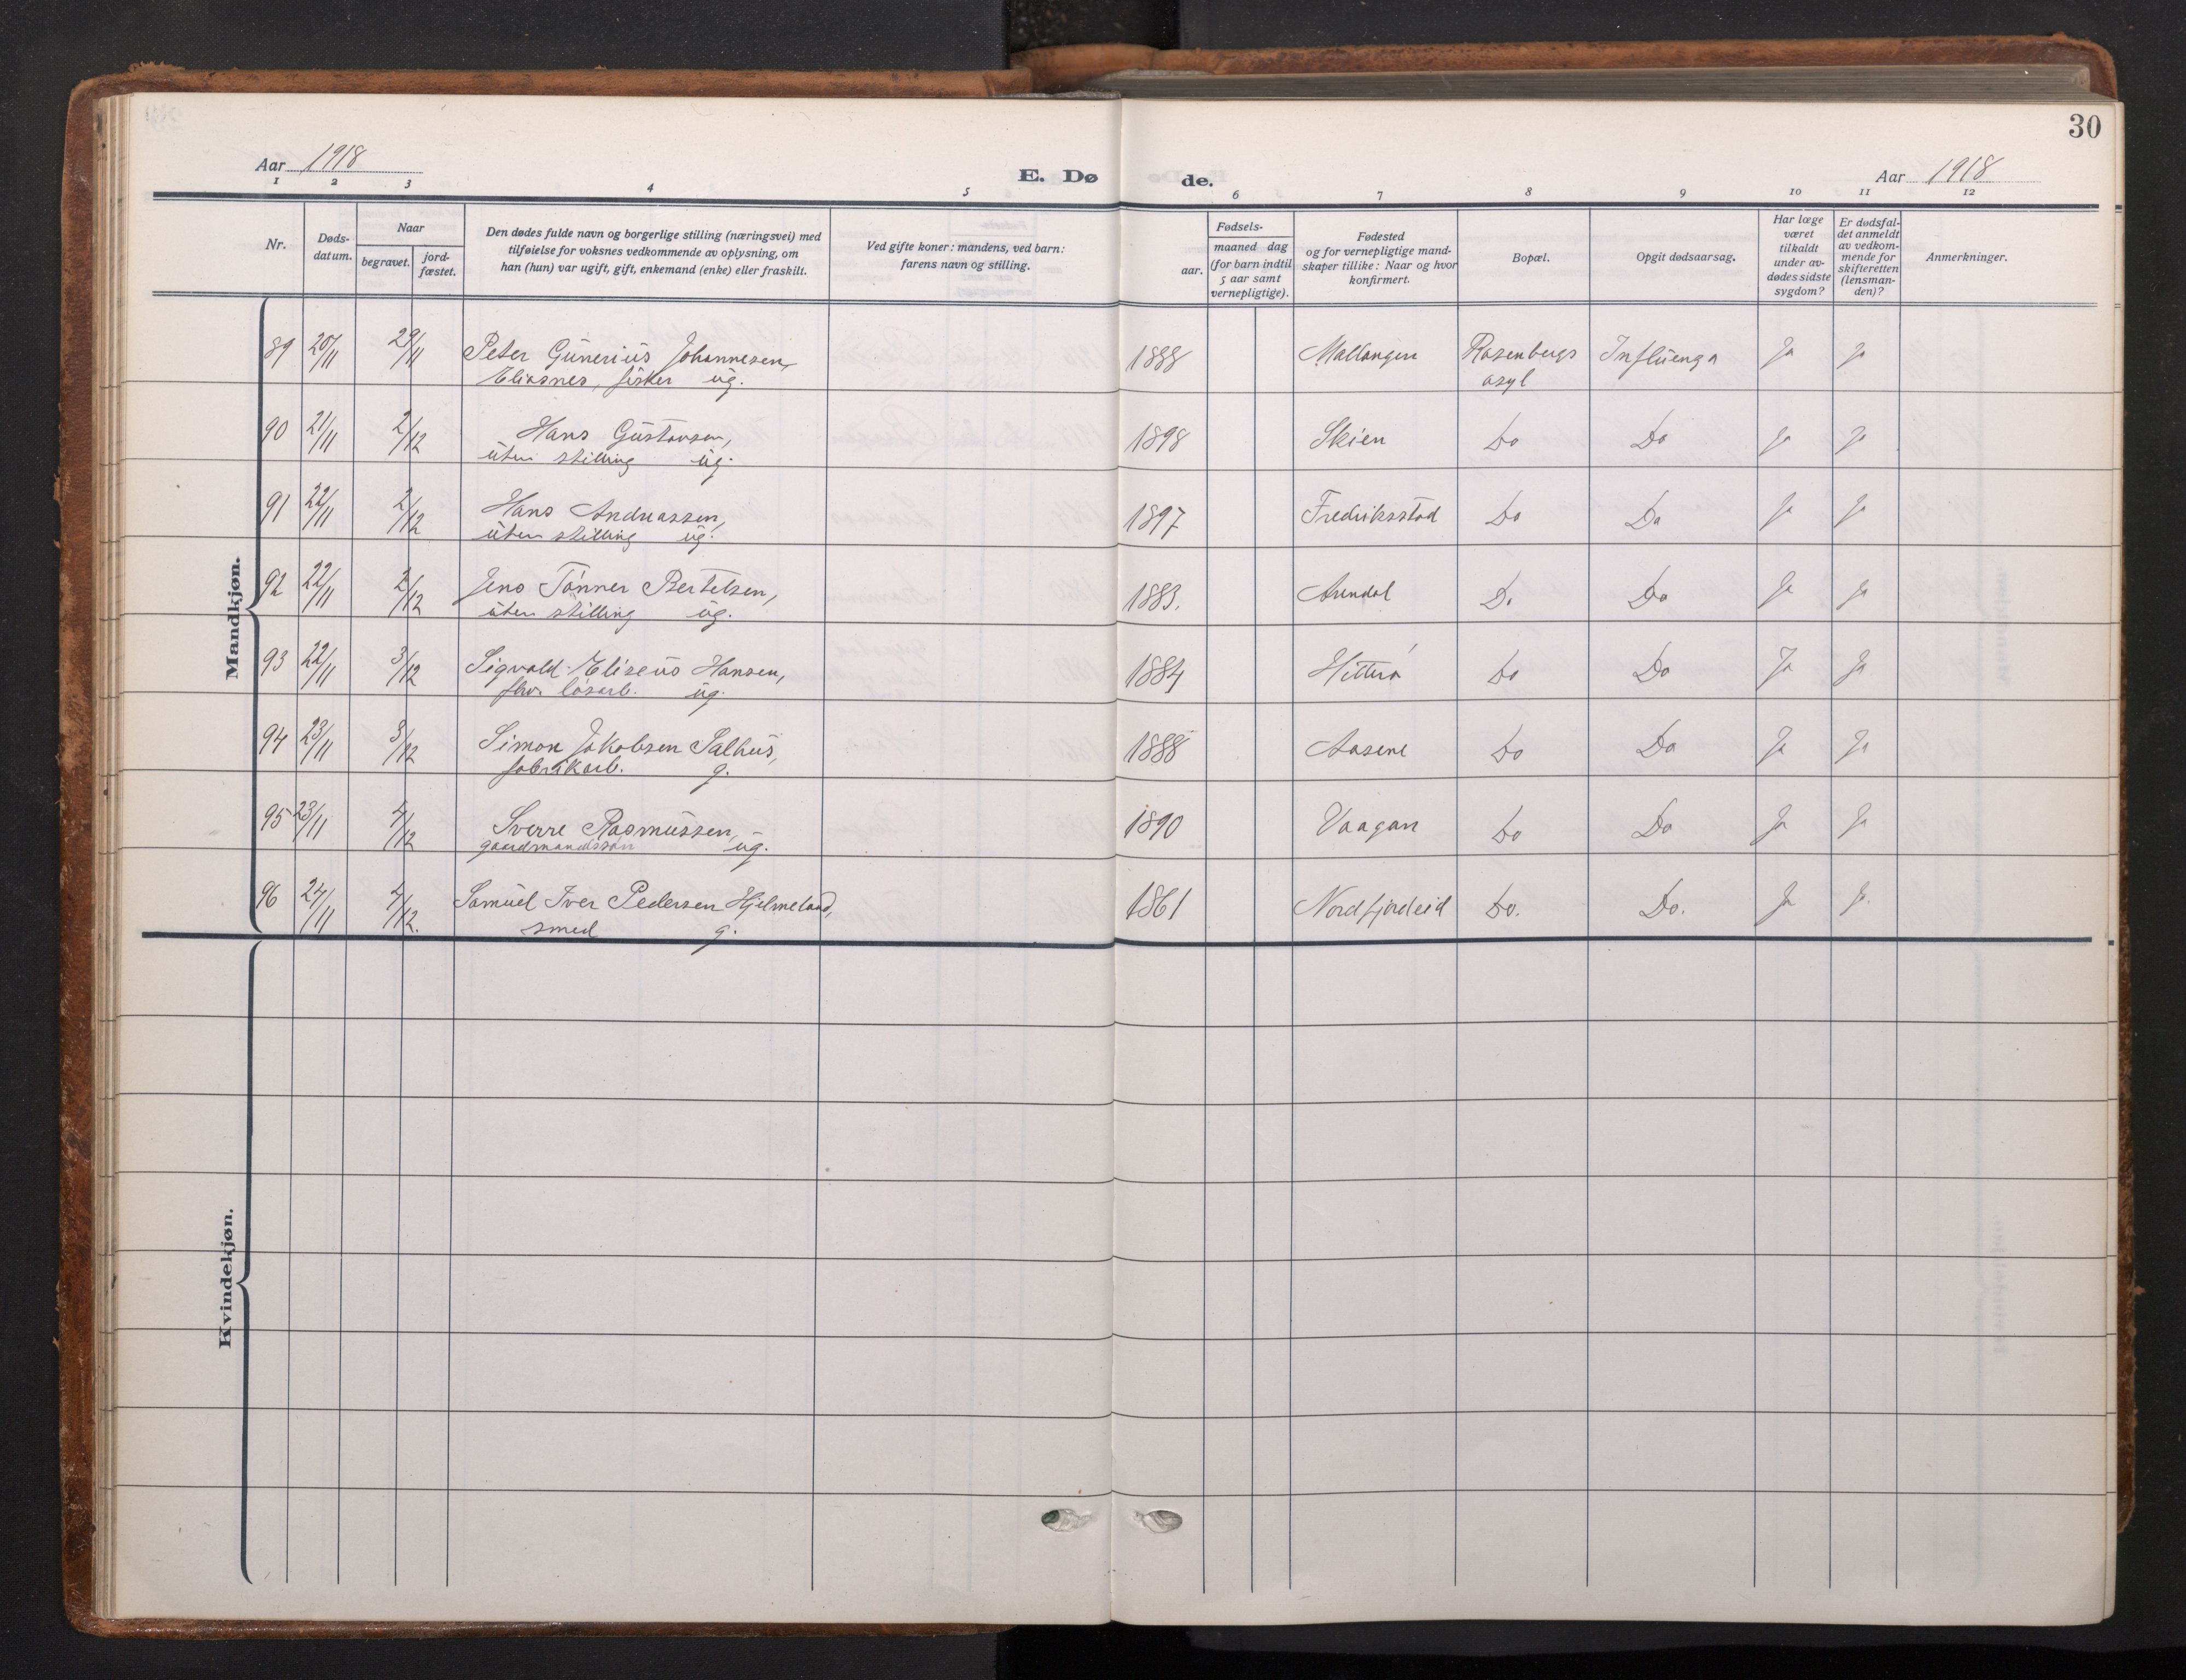 30
Aar 1918
E. Dø
de.
Aar 1918
1 2 3 4 5 6 7 8 9 10 11 12
Nr.
Døds-
datum.
Naar
begravet.
jord-
fæstet.
Den dødes fulde navn og borgerlige stilling (næringsvei) med
tilføielse for voksnes vedkommende av oplysning, om
han (hun) var ugift, gift, enkemand (enke) eller fraskilt.
Ved gifte koner: mandens, ved barn:
farens navn og stilling.
Fødsels-
aar.
maaned dag
(for barn indtil
5 aar samt
vernepligtige).
Fødested
og for vernepligtige mand-
skaper tillike: Naar og hvor
konfirmert.
Bopæl.
Opgit dødsaarsag.
Har læge
været
tilkaldt
under av-
dødes sidste
sygdom?
Er dødsfal-
det anmeldt
av vedkom-
mende for
skifteretten
(lensman-
den)?
Anmerkninger.
Mandkjøn.
89 20/11 29/11 Peter Gunerius Johannesen, 1888 Mallangen Rosenbergs Influenza Ja Ja
Eliasnes, fisker ug. asyl
90 21/11 2/12 Hans Gustavsen, 1898 Skien Do Do Ja Ja
uten stilling ug.
91 22/11 2/12 Hans Andreassen, 1897 Fredriksstad Do Do Ja Ja
uten stilling ug.
92 22/11 2/12 Jens Tønner Bertelsen, 1883. Arendal Do Do Ja Ja
uten stilling ug.
93 22/11 3/12 Sigvald Eliseus Hansen, 1884 Hitterø Do Do Ja Ja
løsarb. ug.
94 23/11 3/12 Simon Jakobsen Salhus, 1888 Aasene Do Do Ja Ja
fabrikarb. g.
95 23/11 4/12 Sverre Rasmussen, 1890 Vaagan Do Do Ja Ja
gaardmandssøn ug.
96 24/11 4/12. Samuel Iver Pedersen Hjelmeland, 1861 Nordfjordeid Do. Do. Ja Ja
smed g.
Kvindekjøn.